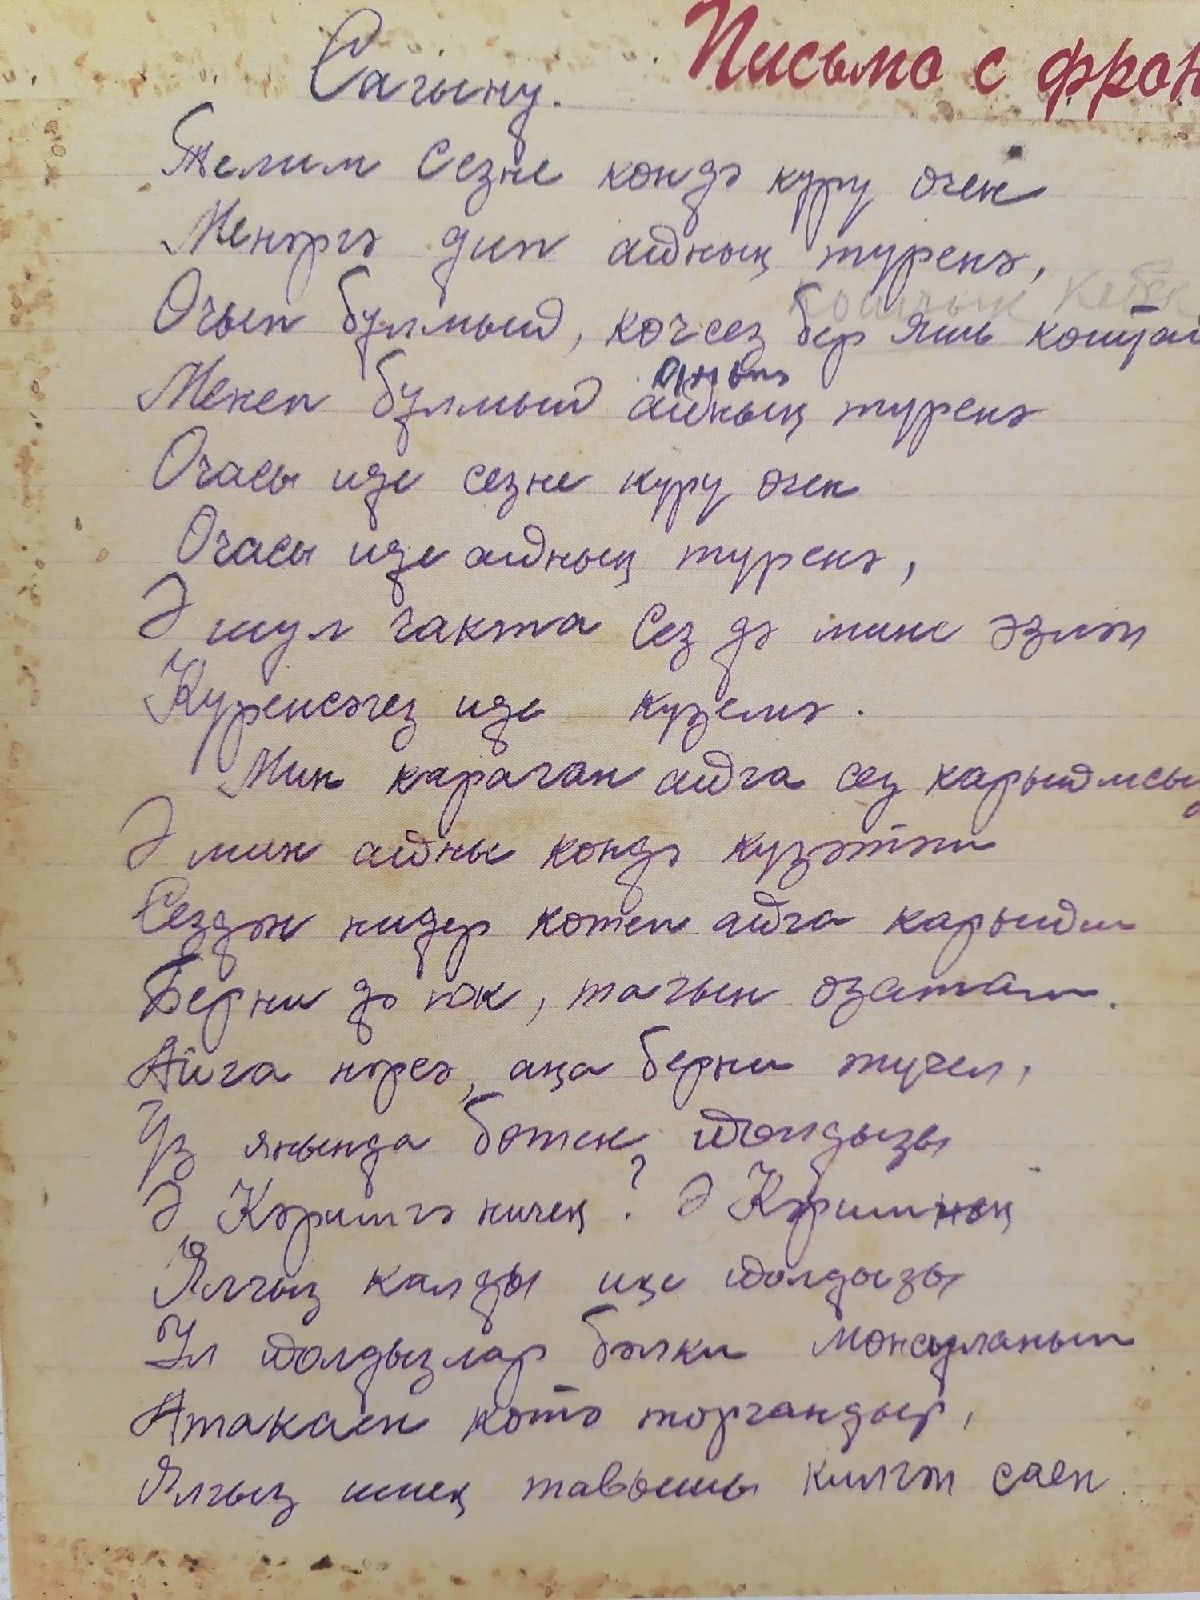 Письмо с фрон
Сагыну.
Телим Сезне көндә күрү өчен
Менәргә дип айның түренә,
Очып булмый, көчсез бер яшь коштай
Менеп булмый айның түренә
Очасы иде сезне күрү өчен
Очасы иде айның түренә,
Ә шул чакта Сез дә мине эзләп
Күренсәгез иде күземә.
Мин караган айга сез карыймсыз
Ә мин айны көндә күзәтәм
Сездән нидер көтеп айга карыйм
Берни дә юк, тагын озатам.
Айга нәрсә, аңа берни түгел,
Үз янында бөтен йолдызы
Ә Кәримгә ничек? Ә Кәримнең
Ялгыз калды ике йолдызы
Ул йолдызлар бәлки моңсуланып
Атакаен көтә торгандыр,
Ялгыз ишек тавышы килгән саен